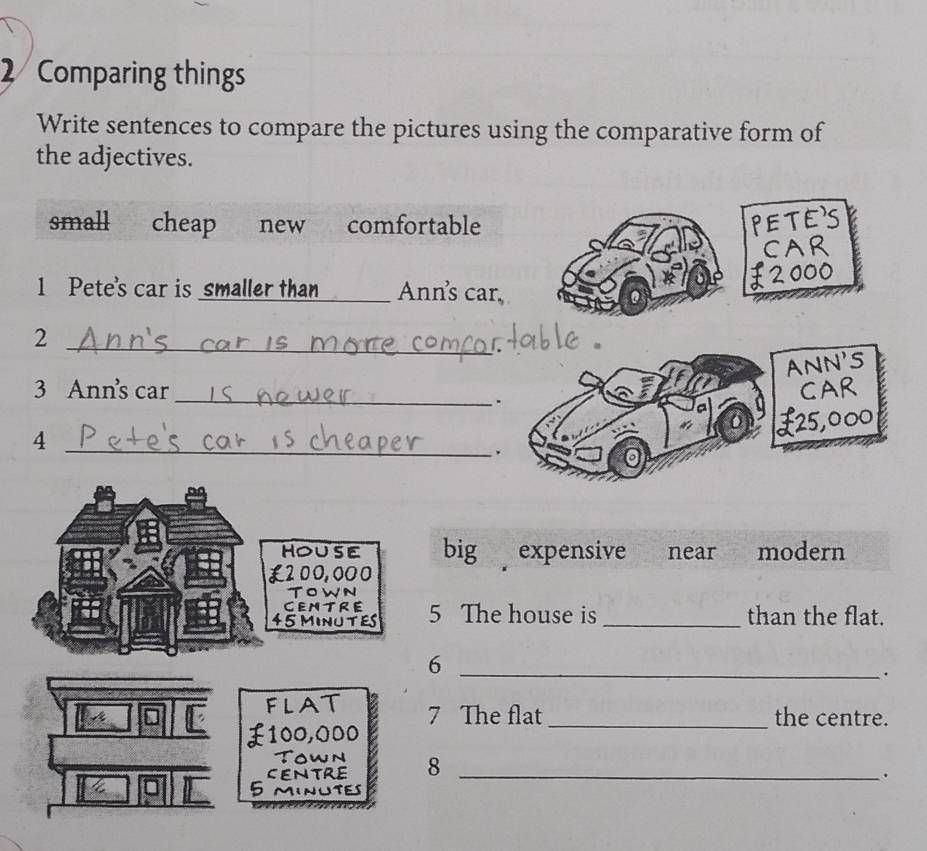 2 Comparing things
Write sentences to compare the pictures using the comparative form of
the adjectives.
small cheap new comfortable
PETE'S
CAR
£2000
1 Pete's car is smaller than Ann's car.
2 Ann's car is more comfortable.
ANN'S
CAR
£25,000
3 Ann's car is newer.
4 Pete's car is cheaper.
HOUSE
£200,000
TOWN
CENTRE
45 MINUTES
big expensive near modern
5 The house is ____ than the flat.
6 ____.
FLAT
£100,000
TOWN
CENTRE
5 MINUTES
7 The flat ____ the centre.
8 ____.